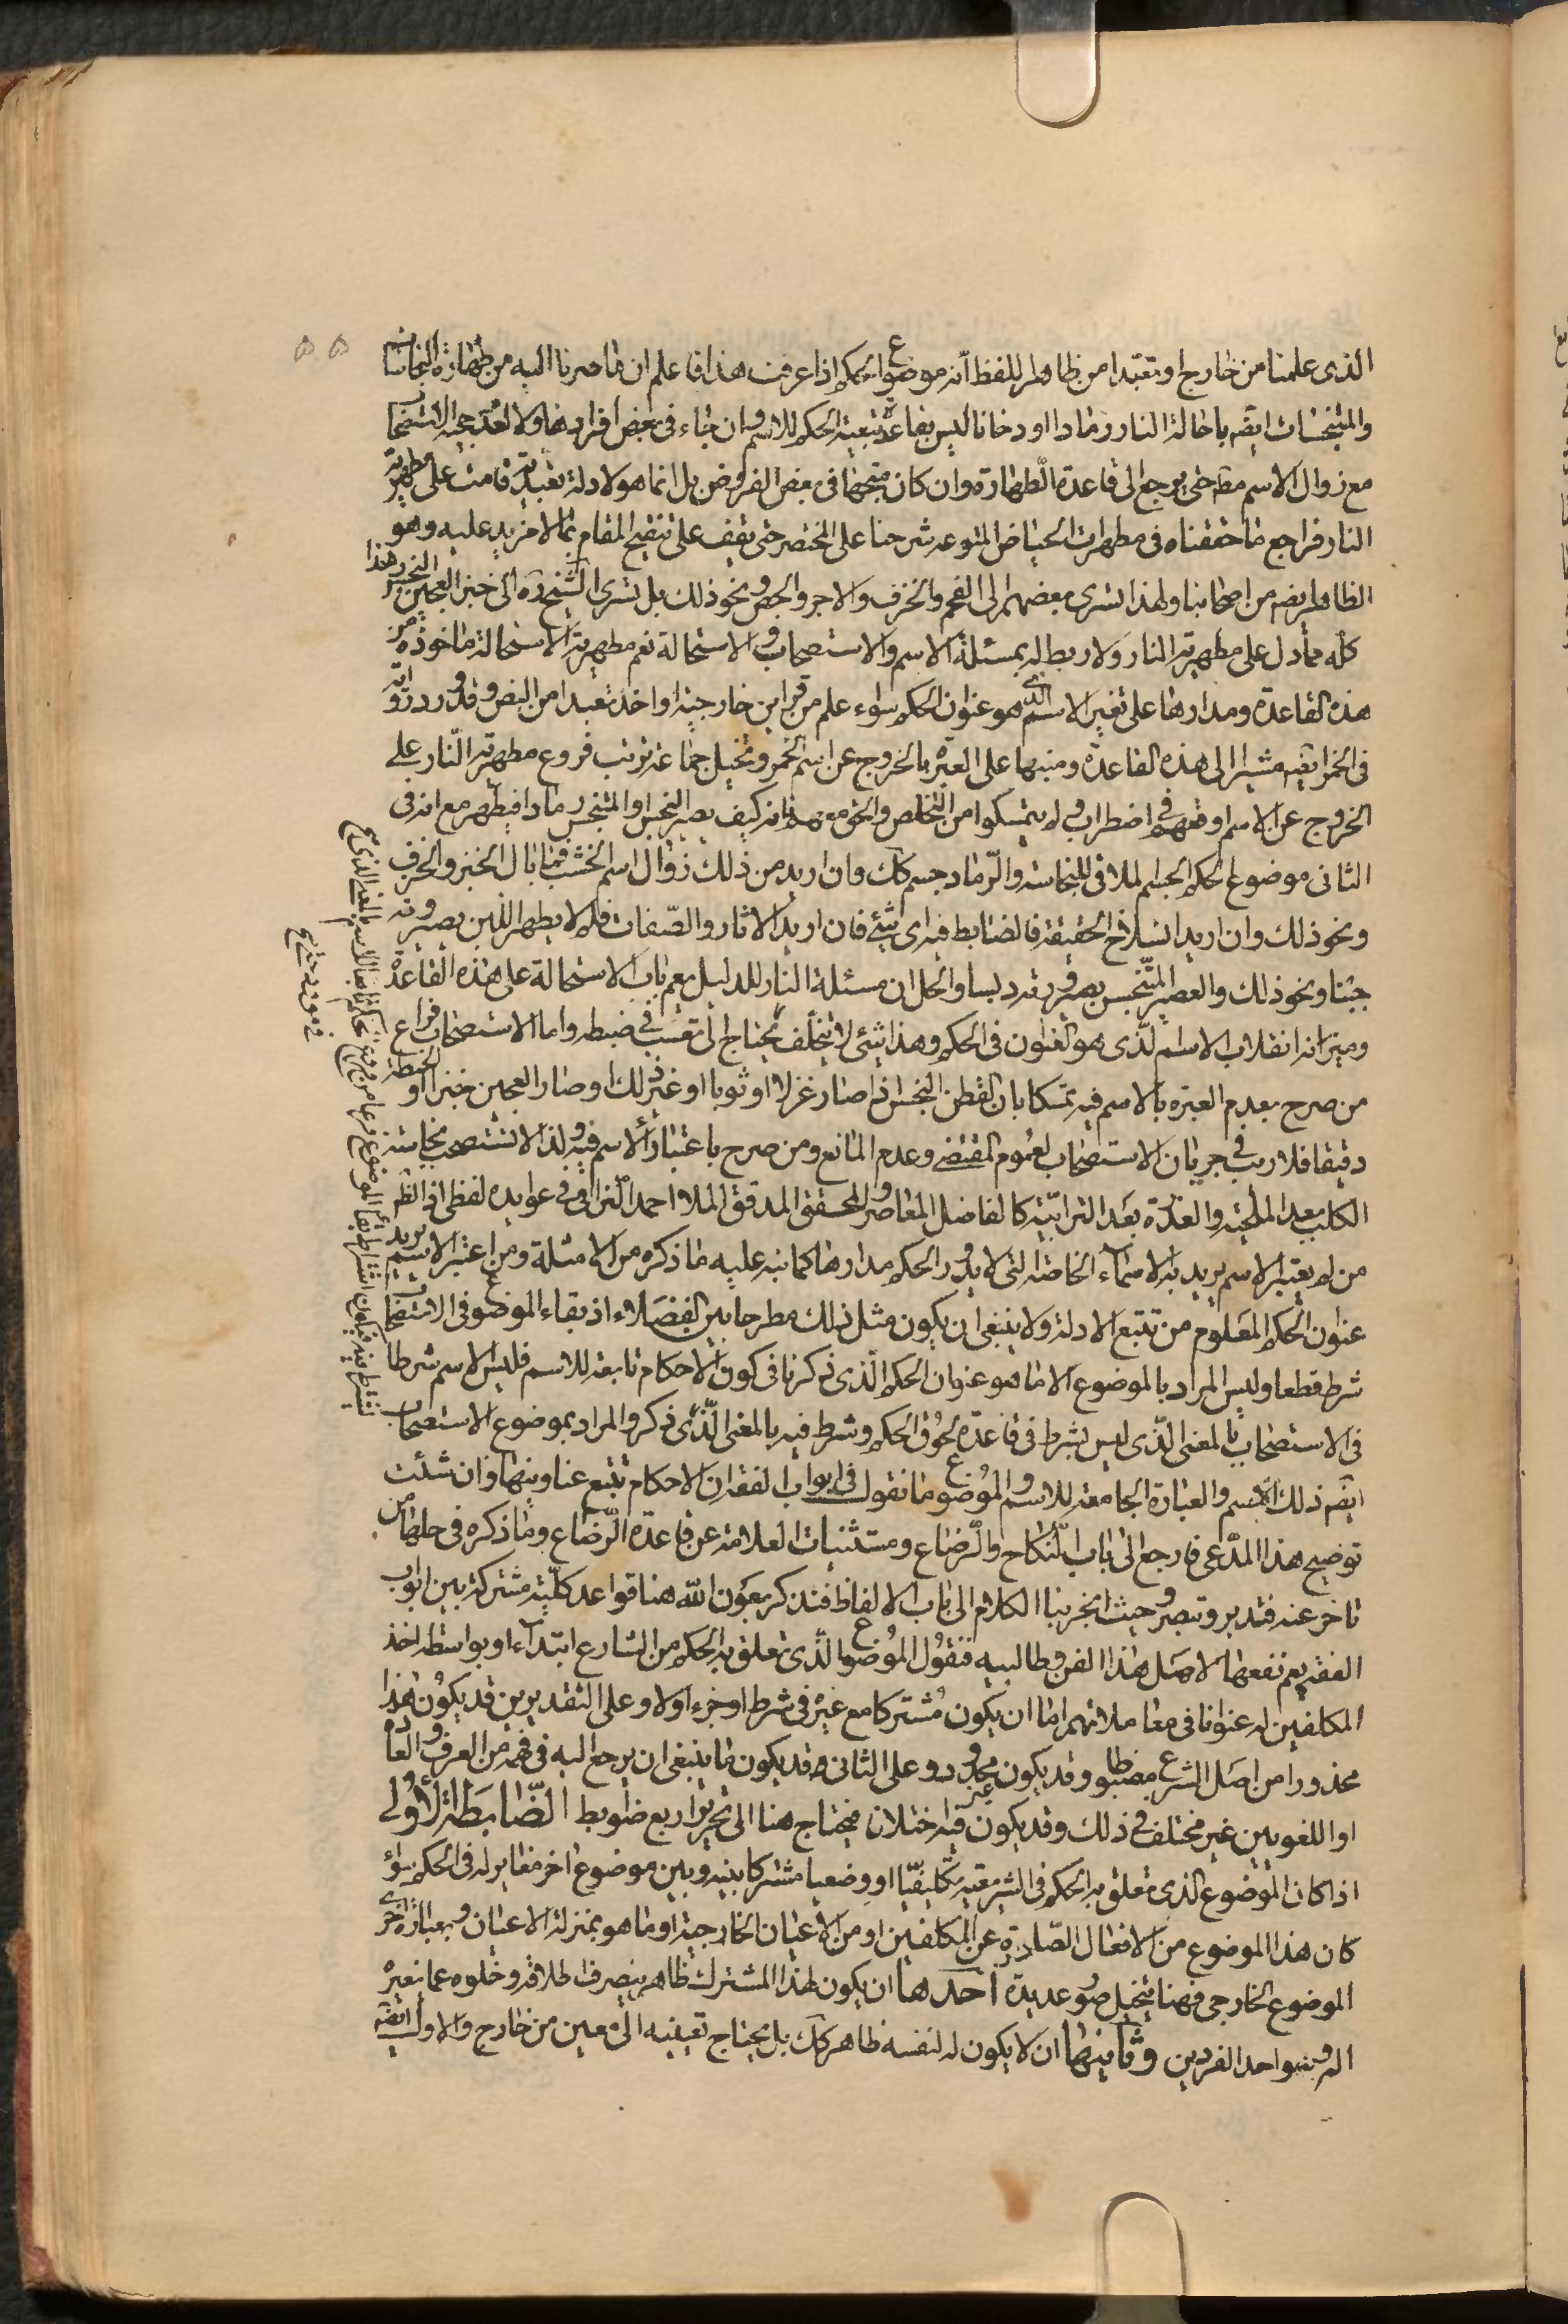 الذى علمنا من خارج او تعبدا من ظاهر اللفظ أنه موضوع الحكم اذا عرفت هذا فاعلم ان ما صرنا اليه من طهارة النجاسات
والمتنجسات ايضا باحالة النار رمادا او دخانا ليس بقاعدة تبعية الحكم للاسم وان جاء فى بعض أفرادها ولا لعدم حجية الاستصحاب
مع زوال الاسم مطلقا حتى يرجع الى قاعدة الطهارة وان كان متجها فى بعض الفروض بل انما هو لادلة تعبدية قامت على مطهرية
النار فراجع ما حققناه فى مطهرات الحياض المترعة شرحنا على المختصر حتى تقف على تنقيح المقام بما لا مزيد عليه وهو
الظاهر ايضا من اصحابنا ولهذا تسرى بعضهم الى الفحم والخزف والاجر والجص ونحو ذلك بل تسرى الشيخ ره الى خبز العجين النجس وهذا
كله مما دل على مطهرية النار ولا ربط له بمسئلة الاسم والاستصحاب والاستحالة نعم مطهرية الاستحالة ماخوذة من
هذه القاعدة ومدارها على تغير الاسم الذى هو عنوان الحكم سواء علم من قراين خارجية او اخذ تعبدا من النص وقد ورد رواية
فى الخمر ايضا مشيرا الى هذه القاعدة ومنبها على العبرة بالخروج عن اسم الخمر وتخيل جماعة ترتب فروع مطهرية النار على
الخروج عن الاسم اوقعهم فى اضطراب ولم يتمسكوا من التخلص والحق معهم فانه كيف يصير النجس او المتنجس رمادا فيطهر مع انه فى
الثانى موضوع الحكم الجسم الملاقى للنجاسة والرماد جسم كك وان اريد من ذلك زوال اسم الخشب فما بال الخبز والخزف
ونحو ذلك وان اريد انسلاخ الحقيقة فالضابط فيه اى شئ فان اريد الاثار والصفات فلم لا يطهر اللبن بصيرورته
جبنا ونحو ذلك والعصير المتنجس بصيرورته دبسا والحل ان مسئلة النار للدليل نعم باب الاستحالة على هذه القاعدة
وميزانه انقلاب الاسم الذى هو العنوان فى الحكم وهذا شئ لا يتخلف يحتاج الى تعب فى ضبطه واما الاستصحاب فراع
من صرح بعدم العبرة بالاسم فيه تمسكا بان القطن النجس اذا صار غزلا او ثوبا او غير ذلك او صار العجين خبزا او الحنطة
دقيقا فلا ريب فى جريان الاستصحاب لعموم المقتضى وعدم المانع ومن صرح باعتبار الاسم فيه ولذا لا نستصحب نجاسة
الكلب بعد الملحية والعذرة بعد الترابية كالفاضل المعاصر والمحقق المدقق الملا احمد النراقى فى عوايده لفظى اذ الظ
من لم يعتبر الاسم يريد به الاسماء الخاصة التى لا يدور الحكم مدارها كما نبه عليه ما ذكره من الامثلة ومن اعتبر الاسم يريد
عنوان الحكم المعلوم من تتبع الادلة ولا ينبغى ان يكون مثل ذلك مطرحا بين الفضلاء اذ بقاء الموضوع فى الاستصحاب
شرط قطعا وليس المراد بالموضوع الا ما هو عنوان الحكم الذى ذكرنا فى كون الاحكام تابعة للاسم فليس الاسم شرطا
فى الاستصحاب بالمعنى الذى ليس بشرط فى قاعدة لحوق الحكم وشرط فيه بالمعنى الذى ذكر والمراد بموضوع الاستصحاب
ايضا ذلك الاسم والعبارة الجامعة للاسم والموضوع ما نقول فى ابواب الفقه ان الاحكام تتبع عناوينها وان شئت
توضيح هذا المدعى فارجع الى باب النكاح والرضاع ومستثنيات العلامة عن قاعدة الرضاع وما ذكره فى حلها من
تاخر عنه فتدبر وتبصر وحيث انجر بنا الكلام الى باب الالفاظ فنذكر بعون الله هنا قواعد كلية مشتركة بين ابواب
الفقه يعم نفعها لاهل هذا الفن وطالبيه فنقول الموضوع الذى تعلق به الحكم من الشارع ابتداء او بواسطة اخذ
المكلفين له عنوانا فى معاملاتهم اما ان يكون مشتركا مع غيره فى شرط او جزء او لا وعلى التقديرين قد يكون هذا
محذورا من اصل الشرع مضبوطا وقد يكون غير محدود وعلى الثانى قد يكون ما ينبغى ان يرجع اليه فى فهمه من العرف والعادة
او اللغويين غير مختلف فى ذلك وقد يكون فيه اختلاف فيحتاج هنا الى تحرير اربع ضوابط الضابطة الأولى
اذا كان الموضوع الذى تعلق به الحكم فى الشريعة تكليفيا او وضعيا مشتركا بينه وبين موضوع اخر مغاير له فى الحكم سواء
كان هذا الموضوع من الافعال الصادرة عن المكلفين او من الأعيان الخارجية او ما هو بمنزلة الاعيان وبعبارة اخرى
الموضوع الخارجى فهنا يتخيل صور عديدة أحدها ان يكون لهذا المشترك ظاهر ينصرف اطلاقه وخلوه عما يغيره
اليه وهو احد الفردين وثانيها ان لا يكون له لنفسه ظاهر كك بل يحتاج تعيينه الى معين من خارج والاول ايضا